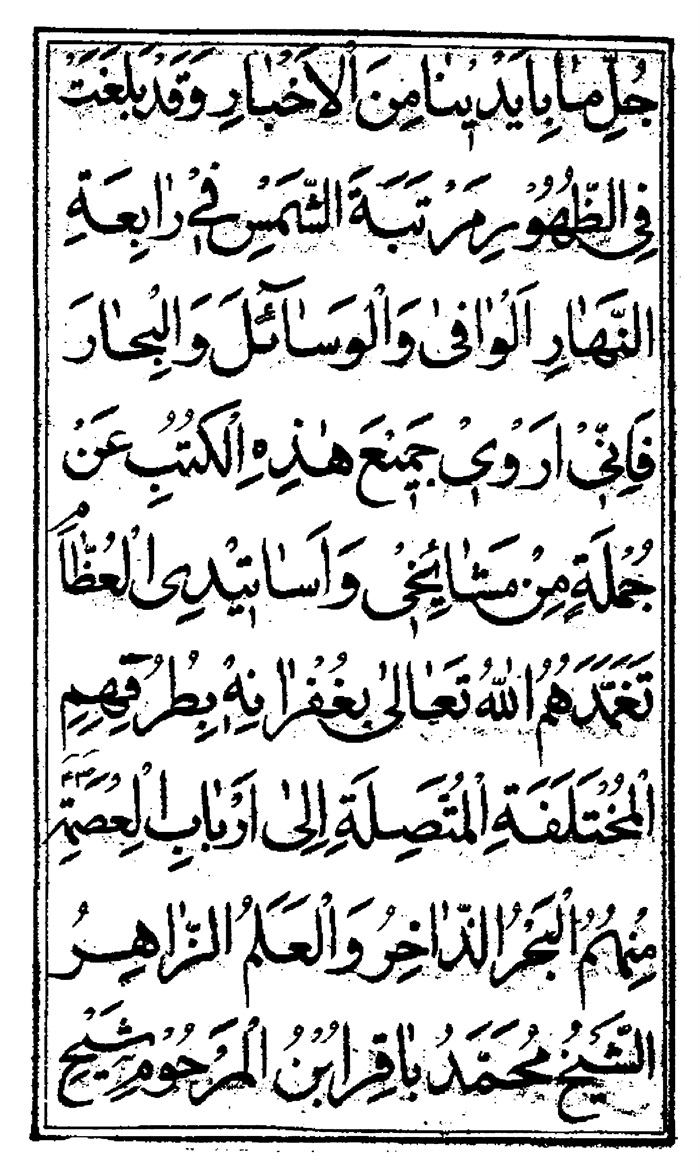 جُلِّ مٰا بِاَيْدِيْنٰا مِنَ الْاَخْبٰارِ وَقَدْ بَلَغَتْ
فِى الظُّهُوُرِ مَرْتَبَةَ الشَّمْسِ فْى رٰابِعَةِ
النَّهٰارِ اَلْوٰافىٰ وَالْوَسٰآئَلَ وَالْبِحٰارَ
فَاِنّىْ اَرْوىْ جَمْيعَ هٰذِهِ الْكُتُبِ عَنْ
جُمْلَةٍ مِنْ مَشٰائِخْى وَاَسٰاتْيدِى الْعُظّٰامِ
تَغَمَّدَهُمُ اللّٰهُ تَعٰالىٰ بِغُفْرٰانِهْ بِطُرُقِهِمِ
الْمُخْتَلَفَةِ الْمُتَّصِلَةِ اِلىٰ اَرْبٰابِ الْعِصْمَةِ
مِنْهُمُ الْبَحْرُ الذّٰاخِرُ وَالْعَلَمُ الزّٰاهِرُ
الشَّيْخُ مُحَمَّدُ بٰاقِرُ ابْنُ الْمَرْحُوْمِ شَيْخِ